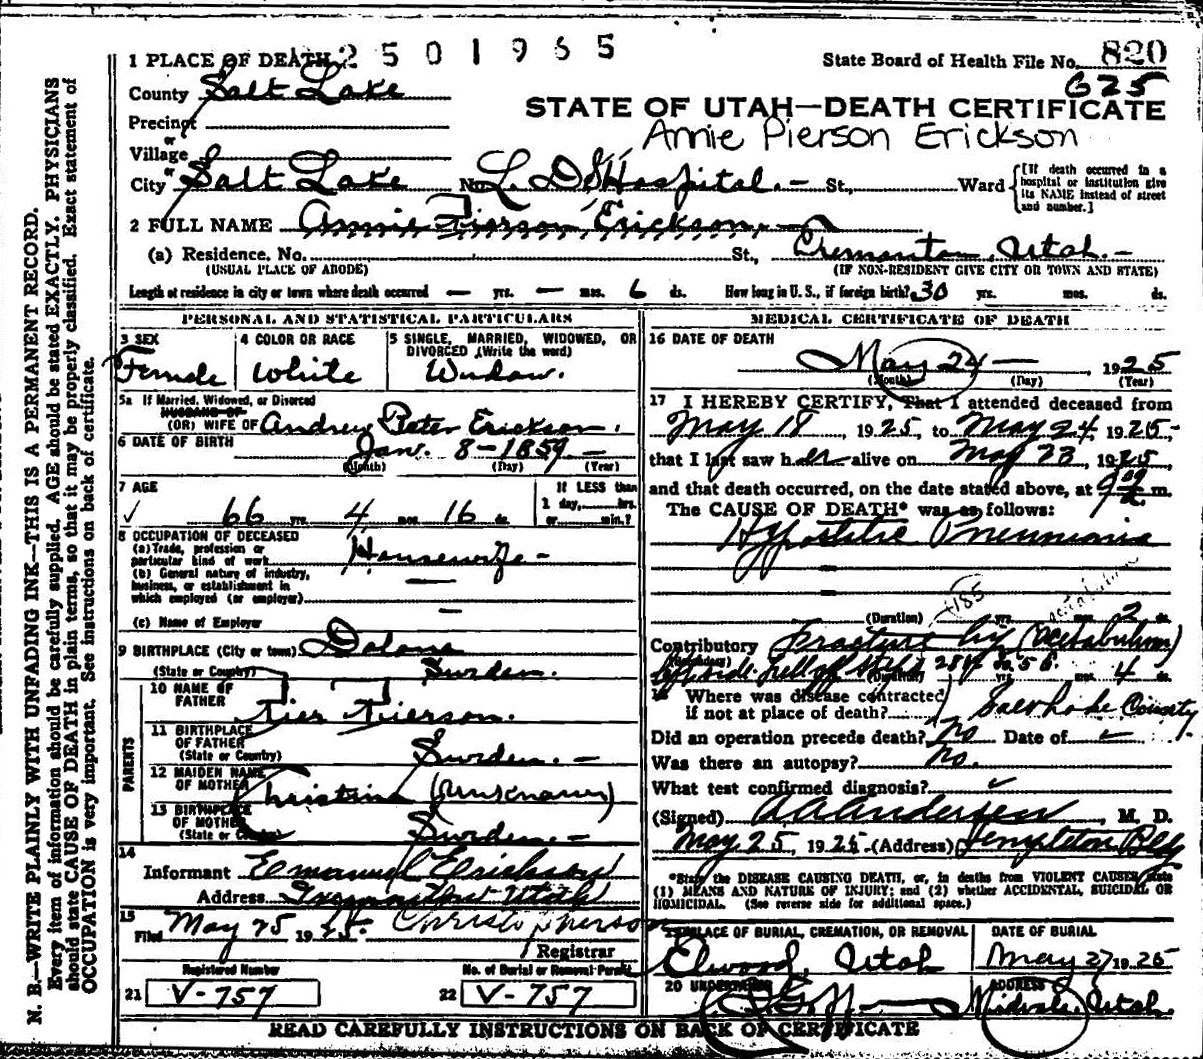 1 PLACE OF DEATH 2 5 0 1 9 6 5
State Board of Health File No. 820
625
County Salt Lake
STATE OF UTAH—DEATH CERTIFICATE
Precinct
Annie Pierson Erickson
or
Village
or
City Salt Lake No. L. D. S Hospital. - St., Ward [If death occurred in a hospital or institution give its NAME instead of street and number.]
2 FULL NAME Annie Pierson Erickson.
(a) Residence. No. St., Tremonton, Utah. -
(USUAL PLACE OF ABODE) (IF NON-RESIDENT GIVE CITY OR TOWN AND STATE)
Length of residence in city or town where death occurred — yrs. — mos. 6 ds. How long in U. S., if foreign birth? 30 yrs. mos. ds.
PERSONAL AND STATISTICAL PARTICULARS
3 SEX
Female
4 COLOR OR RACE
White
5 SINGLE, MARRIED, WIDOWED, OR DIVORCED (Write the word)
Widow.
5a If Married, Widowed, or Divorced
HUSBAND OF
(OR) WIFE OF Andrew Peter Erickson.
6 DATE OF BIRTH Jan. 8-1859. -
(Month) (Day) (Year)
7 AGE
If LESS than
1 day,....hrs.
or....min.?
66 yrs. 4 mos. 16 ds.
8 OCCUPATION OF DECEASED
(a) Trade, profession or
particular kind of work Housewife -
(b) General nature of industry,
business, or establishment in
which employed (or employer)
(c) Name of Employer
9 BIRTHPLACE (City or town)
(State or Country) Sweden.
PARENTS
10 NAME OF
FATHER Pierson.
11 BIRTHPLACE
OF FATHER
(State or Country) Sweden. -
12 MAIDEN NAME
OF MOTHER Christina (Unknown)
13 BIRTHPLACE
OF MOTHER
(State or Country) Sweden. -
14
Informant Emanuel Erickson
Address Tremonton Utah
15
Filed May 25 1925.
Registrar
Registered Number
21 V-757
No. of Burial or Removal Permit
22 V-757
MEDICAL CERTIFICATE OF DEATH
16 DATE OF DEATH
May 24 — , 1925
(Month) (Day) (Year)
17 I HEREBY CERTIFY, That I attended deceased from
May 18, 1925, to May 24, 1925,
that I last saw her alive on May 23, 1925,
and that death occurred, on the date stated above, at m.
The CAUSE OF DEATH* was as follows:
Hypostatic Pneumonia
185
(Duration) yrs. mos. 2 ds.
Contributory Fracture hip (acetabulum)
(Secondary)
(Duration) yrs. mos. 4 ds.
18 Where was disease contracted
if not at place of death? Salt Lake County
Did an operation precede death? No Date of
Was there an autopsy? No.
What test confirmed diagnosis?
(Signed) A A Anderson, M. D.
May 25, 1925 (Address) Templeton Bldg
*State the DISEASE CAUSING DEATH, or, in deaths from VIOLENT CAUSES, state
(1) MEANS AND NATURE OF INJURY; and (2) whether ACCIDENTAL, SUICIDAL OR
HOMICIDAL. (See reverse side for additional space.)
19 PLACE OF BURIAL, CREMATION, OR REMOVAL
Elwood, Utah
DATE OF BURIAL
May 27 1925
20 UNDERTAKER
Goff
ADDRESS
Midvale, Utah.
READ CAREFULLY INSTRUCTIONS ON BACK OF CERTIFICATE
N. B.—WRITE PLAINLY WITH UNFADING INK—THIS IS A PERMANENT RECORD.
Every item of information should be carefully supplied. AGE should be stated EXACTLY. PHYSICIANS
should state CAUSE OF DEATH in plain terms, so that it may be properly classified. Exact statement of
OCCUPATION is very important. See instructions on back of certificate.